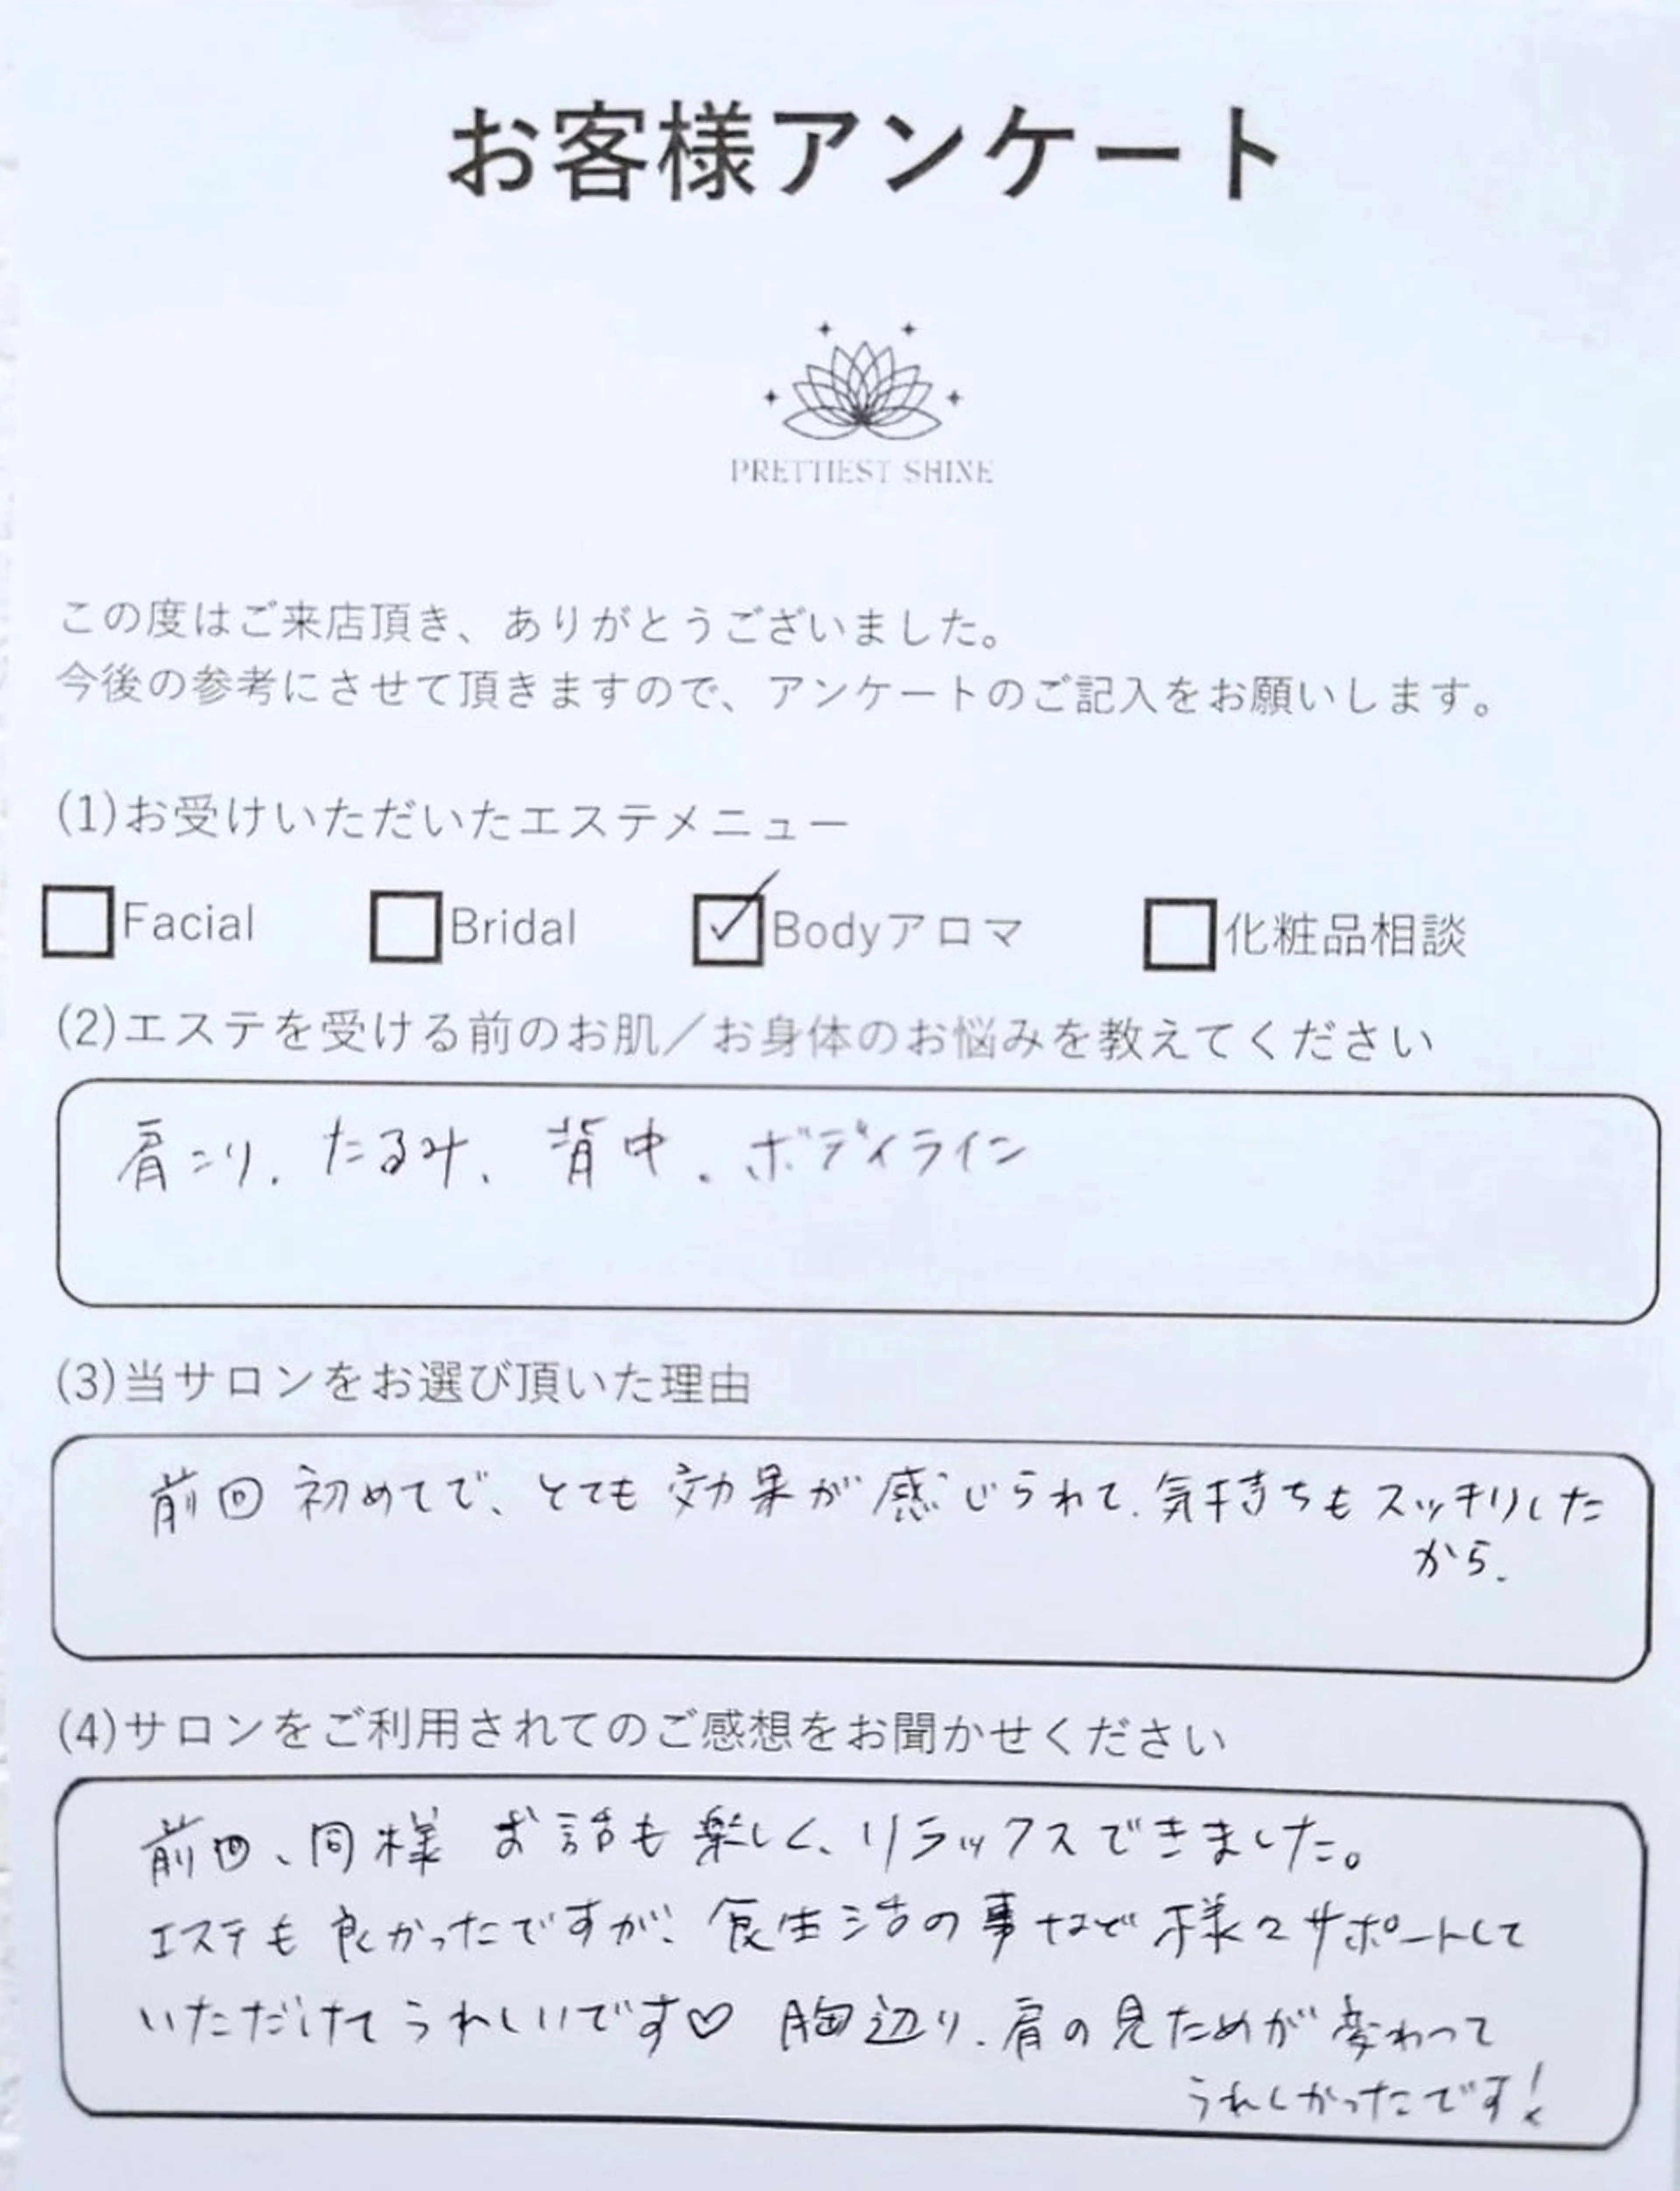 お客様アンケート
PRETTIEST SHINE
この度はご来店頂き、ありがとうございました。
今後の参考にさせて頂きますので、アンケートのご記入をお願いします。
(1)お受けいただいたエステメニュー
Facial Bridal Bodyアロマ 化粧品相談
(2)エステを受ける前のお肌／お身体のお悩みを教えてください
肩こり、たるみ、背中、ボディライン
(3)当サロンをお選び頂いた理由
前回初めてで、とても効果が感じられて、気持ちもスッキリした
から。
(4)サロンをご利用されてのご感想をお聞かせください
前回、同様 お話も楽しく、リラックスできました。
エステも良かったですが、食生活の事など様々サポートして
いただけてうれしいです♡ 胸辺り、肩の見ためが変わって
うれしかったです!